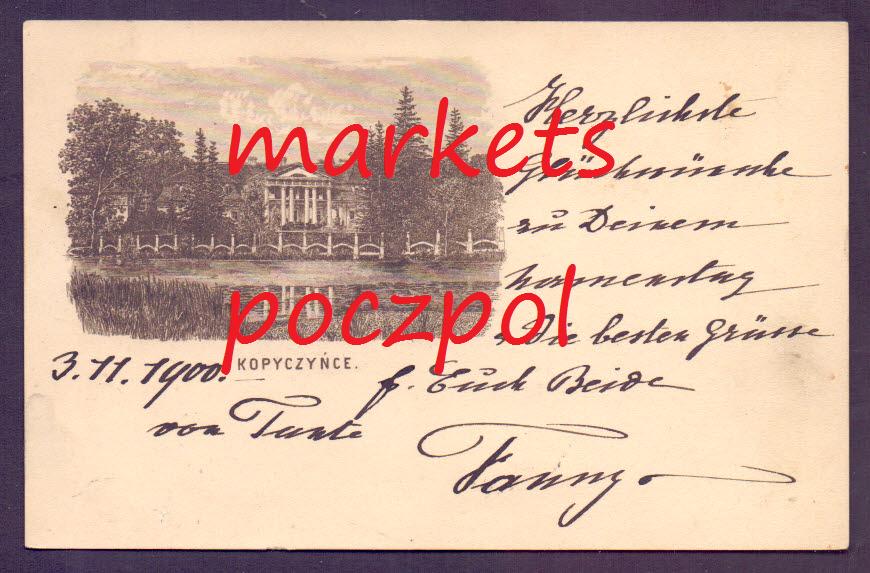 Herzlichste
Glückwünsche
zu Deinem
Namenstag
Die besten Grüsse
f. Euch Beide
von Tante
Fanny
3.11.1900.
KOPYCZYŃCE.
markets
poczpol